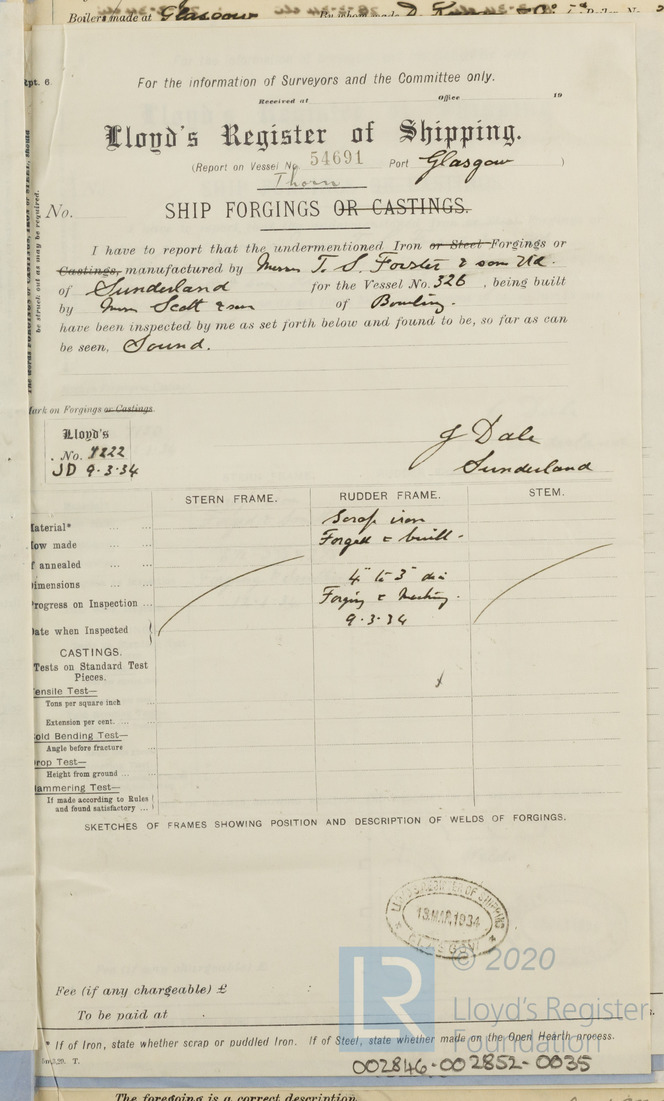 Boilers made at Glasgow By whom made D.
Rpt. 6
For the information of Surveyors and the Committee only.
Received at Office 19
Lloyd's Register of Shipping.
(Report on Vessel No. 54691 Port Glasgow )
Thorn
No. SHIP FORGINGS OR CASTINGS.
I have to report that the undermentioned Iron or Steel Forgings or
Castings, manufactured by Messrs T. S. Forster & sons Ltd.
of Sunderland for the Vessel No. 326 , being built
by Messrs Scott & sons of Bowling.
have been inspected by me as set forth below and found to be, so far as can
be seen, Sound.
Mark on Forgings or Castings
Lloyd's
No. 7222
JD 9.3.34
J Dale
Sunderland
STERN FRAME. RUDDER FRAME. STEM.
Material* Scrap iron
How made Forged & built.
If annealed
Dimensions 4" to 3" dia
Progress on Inspection Forging &
Date when Inspected 9.3.34
CASTINGS.
Tests on Standard Test
Pieces.
Tensile Test—
Tons per square inch
Extension per cent.
Cold Bending Test—
Angle before fracture
Drop Test—
Height from ground
Hammering Test—
If made according to Rules
and found satisfactory
SKETCHES OF FRAMES SHOWING POSITION AND DESCRIPTION OF WELDS OF FORGINGS.
LLOYD'S REGISTER OF SHIPPING
13 MAR 1934
GLASGOW
Fee (if any chargeable) £ :
To be paid at
* If of Iron, state whether scrap or puddled Iron. If of Steel, state whether made on the Open Hearth process.
T.
© 2020
LR
Lloyd's Register
Foundation
002846-002852-0035
The foregoing is a correct description.